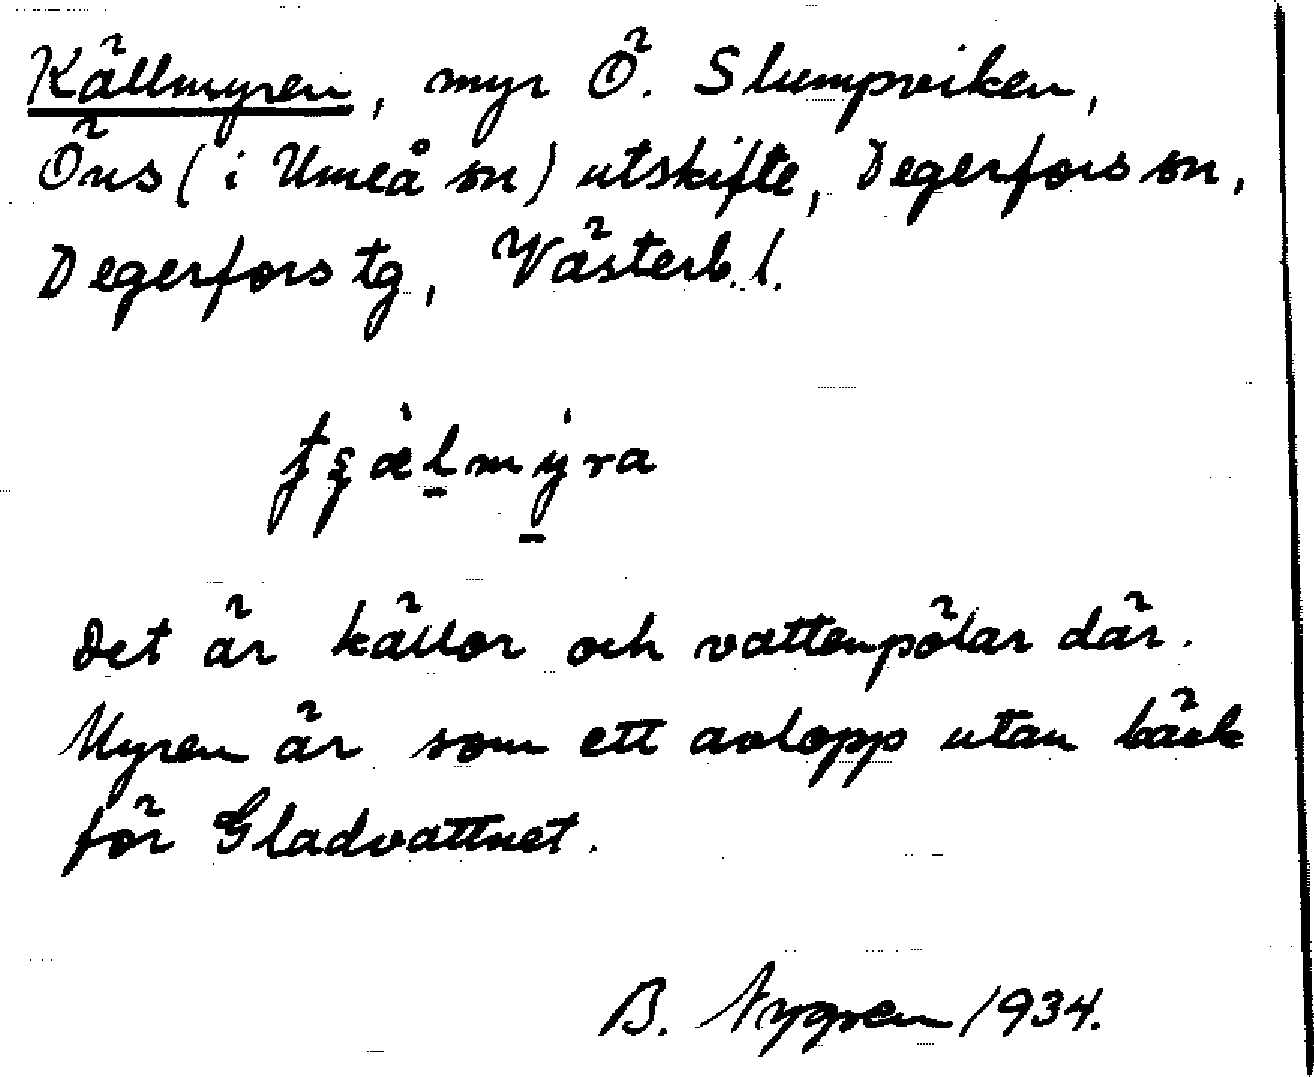 Källmyren, myr Ö. Slumpviken,
Öns (i Umeå sn) utskifte, Degerfors sn,
Degerfors tg, Västerb. l.
tʂæ̀lmýra
Det är källor och vattenpölar där.
Myren är som ett avlopp utan bäck
för Gladvattnet.
B. Nygren 1934.